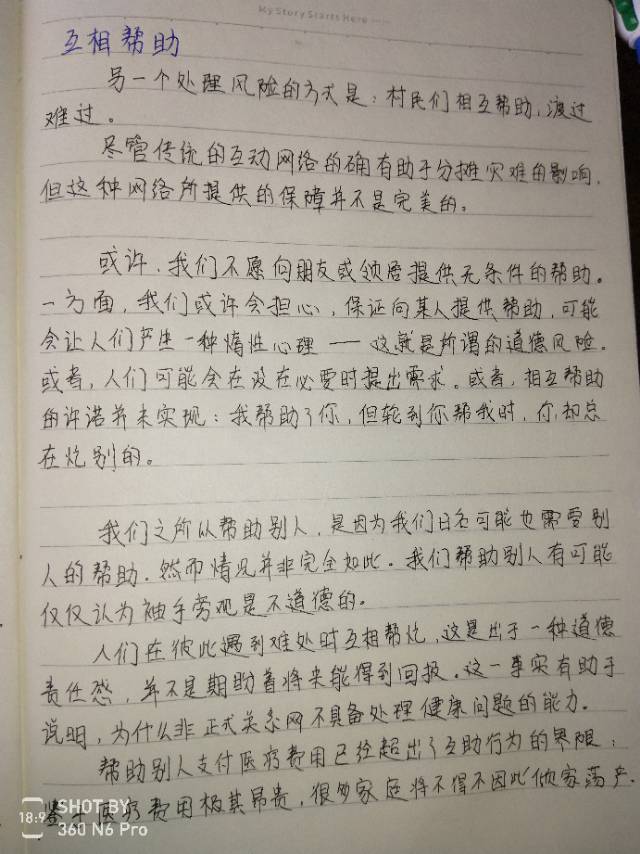 My Story Starts Here
互相帮助
另一个处理风险的方式是：村民们相互帮助，渡过
难过。
尽管传统的互动网络的确有助于分摊灾难的影响，
但这种网络所提供的保障并不是完美的。
或许，我们不愿向朋友或领居提供无条件的帮助。
一方面，我们或许会担心，保证向某人提供帮助，可能
会让人们产生一种惰性心理——这就是所谓的道德风险。
或者，人们可能会在没在必要时提出需求。或者，相互帮助
的许诺并未实现：我帮助了你，但轮到你帮我时，你却总
在忙别的。
我们之所以帮助别人，是因为我们日后可能也需要别
人的帮助。然而情况并非完全如此。我们帮助别人有可能
仅仅认为袖手旁观是不道德的。
人们在彼此遇到难处时互相帮忙，这是出于一种道德
责任感，并不是期盼着将来能得到回报。这一事实有助于
说明，为什么非正式关系网不具备处理健康问题的能力。
帮助别人支付医疗费用已经超出了互助行为的界限；
鉴于医疗费用极其昂贵，很多家庭将不得不因此倾家荡产。
SHOT BY
360 N6 Pro